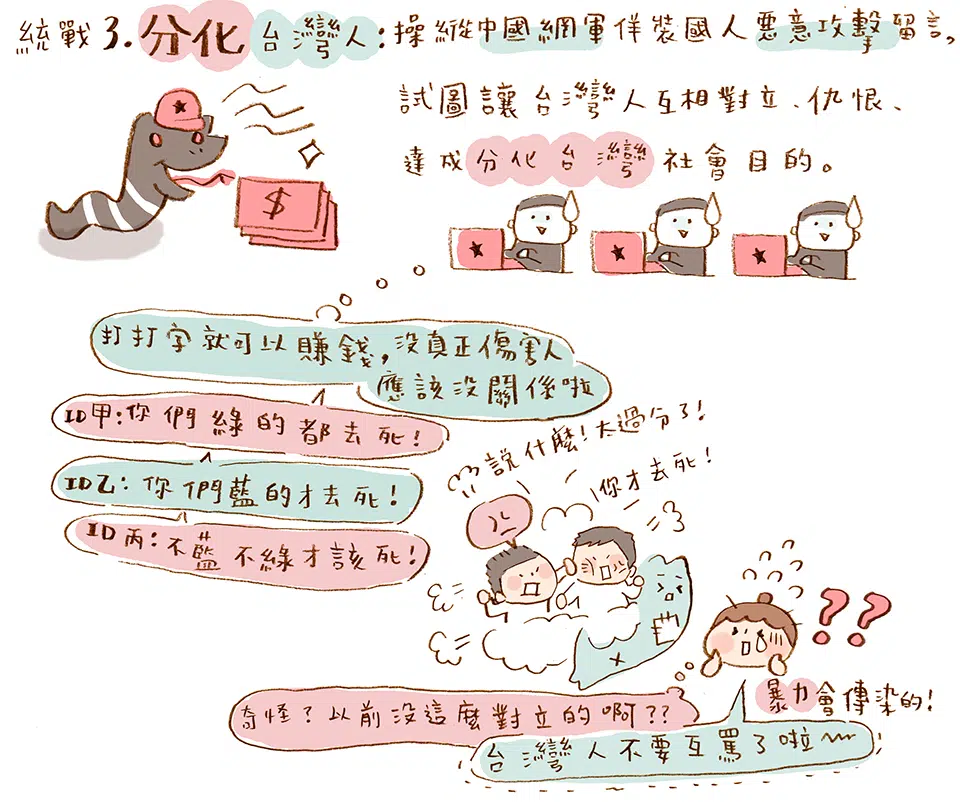 統戰3.分化台灣人:操縱中國網軍佯裝國人惡意攻擊留言,
試圖讓台灣人互相對立、仇恨、
達成分化台灣社會目的。
$
打打字就可以賺錢,沒真正傷害人
應該沒關係啦
ID甲:你們綠的都去死!
ID乙:你們藍的才去死!
ID丙:不藍不綠才該死!
說什麼!太過分了!
你才去死!
??
暴力會傳染的!
奇怪?以前沒這麼對立的啊??
台灣人不要互罵了啦~